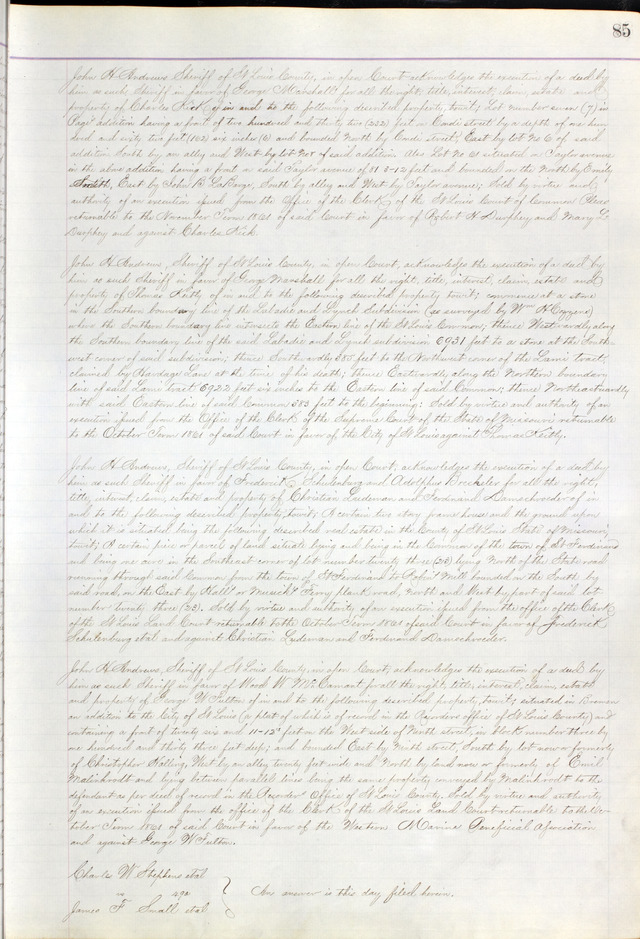 85
John H Andrews Sheriff of St Louis County, in open Court acknowledges the execution of a deed by
him as such Sheriff in favor of George Marshall for all the right, title, interest, claim, estate and
property of Charles Kick of in and to the following described property, towit; Lot number seven (7) in
Page's addition having a front of two hundred and thirty two (232) feet on Condi street by a depth of one hun
dred and sixty two feet (162) six inches (6) and bounded North by Condi street, East by lot No 6 of said
addition South by an alley and West by lot No 8 of said addition Also Lot No 21 situated on Taylor avenue
in the above addition having a front on said Taylor avenue of feet and bounded on the North by Emily
Street, East by John B LaBarge, South by alley and West by Taylor avenue; Sold by virtue and
authority of an execution issued from the Office of the Clerk of the St Louis Court of Common Pleas
returnable to the November Term 1861 of said Court in favor of Robert H Durphey and Mary L
Durphey and against Charles Kick
John H Andrews, Sheriff of St Louis County, in open Court, acknowledges the execution of a deed by
him as such Sheriff in favor of George Marshall for all the right, title, interest, claim, estate and
property of Thomas Kielty of in and to the following described property towit; commence at a stone
in the Southern boundary line of the Labadie and Lynch Subdivision (as surveyed by Wm H Cozzens)
where the Southern boundary line intersects the Eastern line of the St Louis Common; thence Westwardly along
the Southern boundary line of the said Labadie and Lynch subdivision 6931 feet to a stone at the South
west corner of said subdivision; thence Southwardly 585 feet to the Northwest corner of the Lami tract,
claimed by Hardage Lane at the time of his death; thence Eastwardly along the Northern boundary
line of said Lami tract 6922 feet six inches to the Eastern line of said Common; thence Northeastwardly
with said Eastern line of said Common 583 feet to the beginning; Sold by virtue and authority of an
execution issued from the Office of the Clerk of the Supreme Court of the State of Missouri returnable
to the October Term 1861 of said Court in favor of the City of St Louis against Thomas Kielty.
John H Andrews, Sheriff of St Louis County, in open Court, acknowledges the execution of a deed by
him as such Sheriff in favor of Frederick Schulenburg and Adolphus Boeckeler for all the right,
title, interest, claim, estate and property of Christian Ludeman and Ferdinand Damschroeder of in
and to the following described property, towit; A certain two story frame house and the ground upon
which it is situated being the following described real estate in the County of St Louis State of Missouri
towit; A certain piece or parcel of land situate lying and being in the Common of the town of St Ferdinand
and being one acre in the Southeast corner of lot number twenty three (23) lying North of the State road
running through said Common from the town of St Ferdinand to Mill bounded on the South by
said road, on the East by Hall's or Musick's Ferry plank road, North and West by part of said lot
number twenty three (23). Sold by virtue and authority of an execution issued from the office of the Clerk
of the St Louis Land Court returnable to the October Term 1861 of said Court in favor of Frederick
Schulenburg etal and against Christian Ludeman and Ferdinand Damschroeder.
John H Andrews, Sheriff of St Louis County, in open Court, acknowledges the execution of a deed by
him as such Sheriff in favor of Wood W McCammant for all the right, title, interest, claim, estate
and property of George W Fulton of in and to the following described property, towit; situated in Bremen
an addition to the City of St Louis (a plat of which is of record in the Recorders office of St Louis County) and
containing a front of twenty six and 11-12 feet on the West side of Ninth street, in block number three by
one hundred and thirty three feet deep; and bounded East by Ninth street, South by lot now or formerly
of Christopher Holling, West by an alley twenty feet wide and North by land now or formerly of Emil
Malinkrodt and lying between parallel lines being the same property conveyed by Malinkrodt to the
defendant as per deed of record in the Recorders Office of St Louis County. Sold by virtue and authority
of an execution issued from the office of the Clerk of the St Louis Land Court returnable to the Oc-
tober Term 1861 of said Court in favor of the Western Marine Beneficial Association
and against George W Fulton.
Charles W Stephens etal
vs
James F Small etal
An answer is this day filed herein.